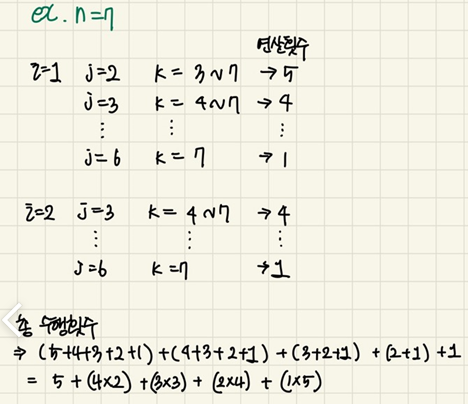 ex. n=7
연산횟수
i=1 j=2 k = 3~7 → 5
j=3 k = 4~7 → 4
⋮ ⋮ ⋮
j=6 k = 7 → 1
i=2 j=3 k = 4~7 → 4
⋮ ⋮ ⋮
j=6 k=7 → 1
총 수행횟수
⇒ (5+4+3+2+1) + (4+3+2+1) + (3+2+1) + (2+1) + 1
= 5 + (4×2) + (3×3) + (2×4) + (1×5)